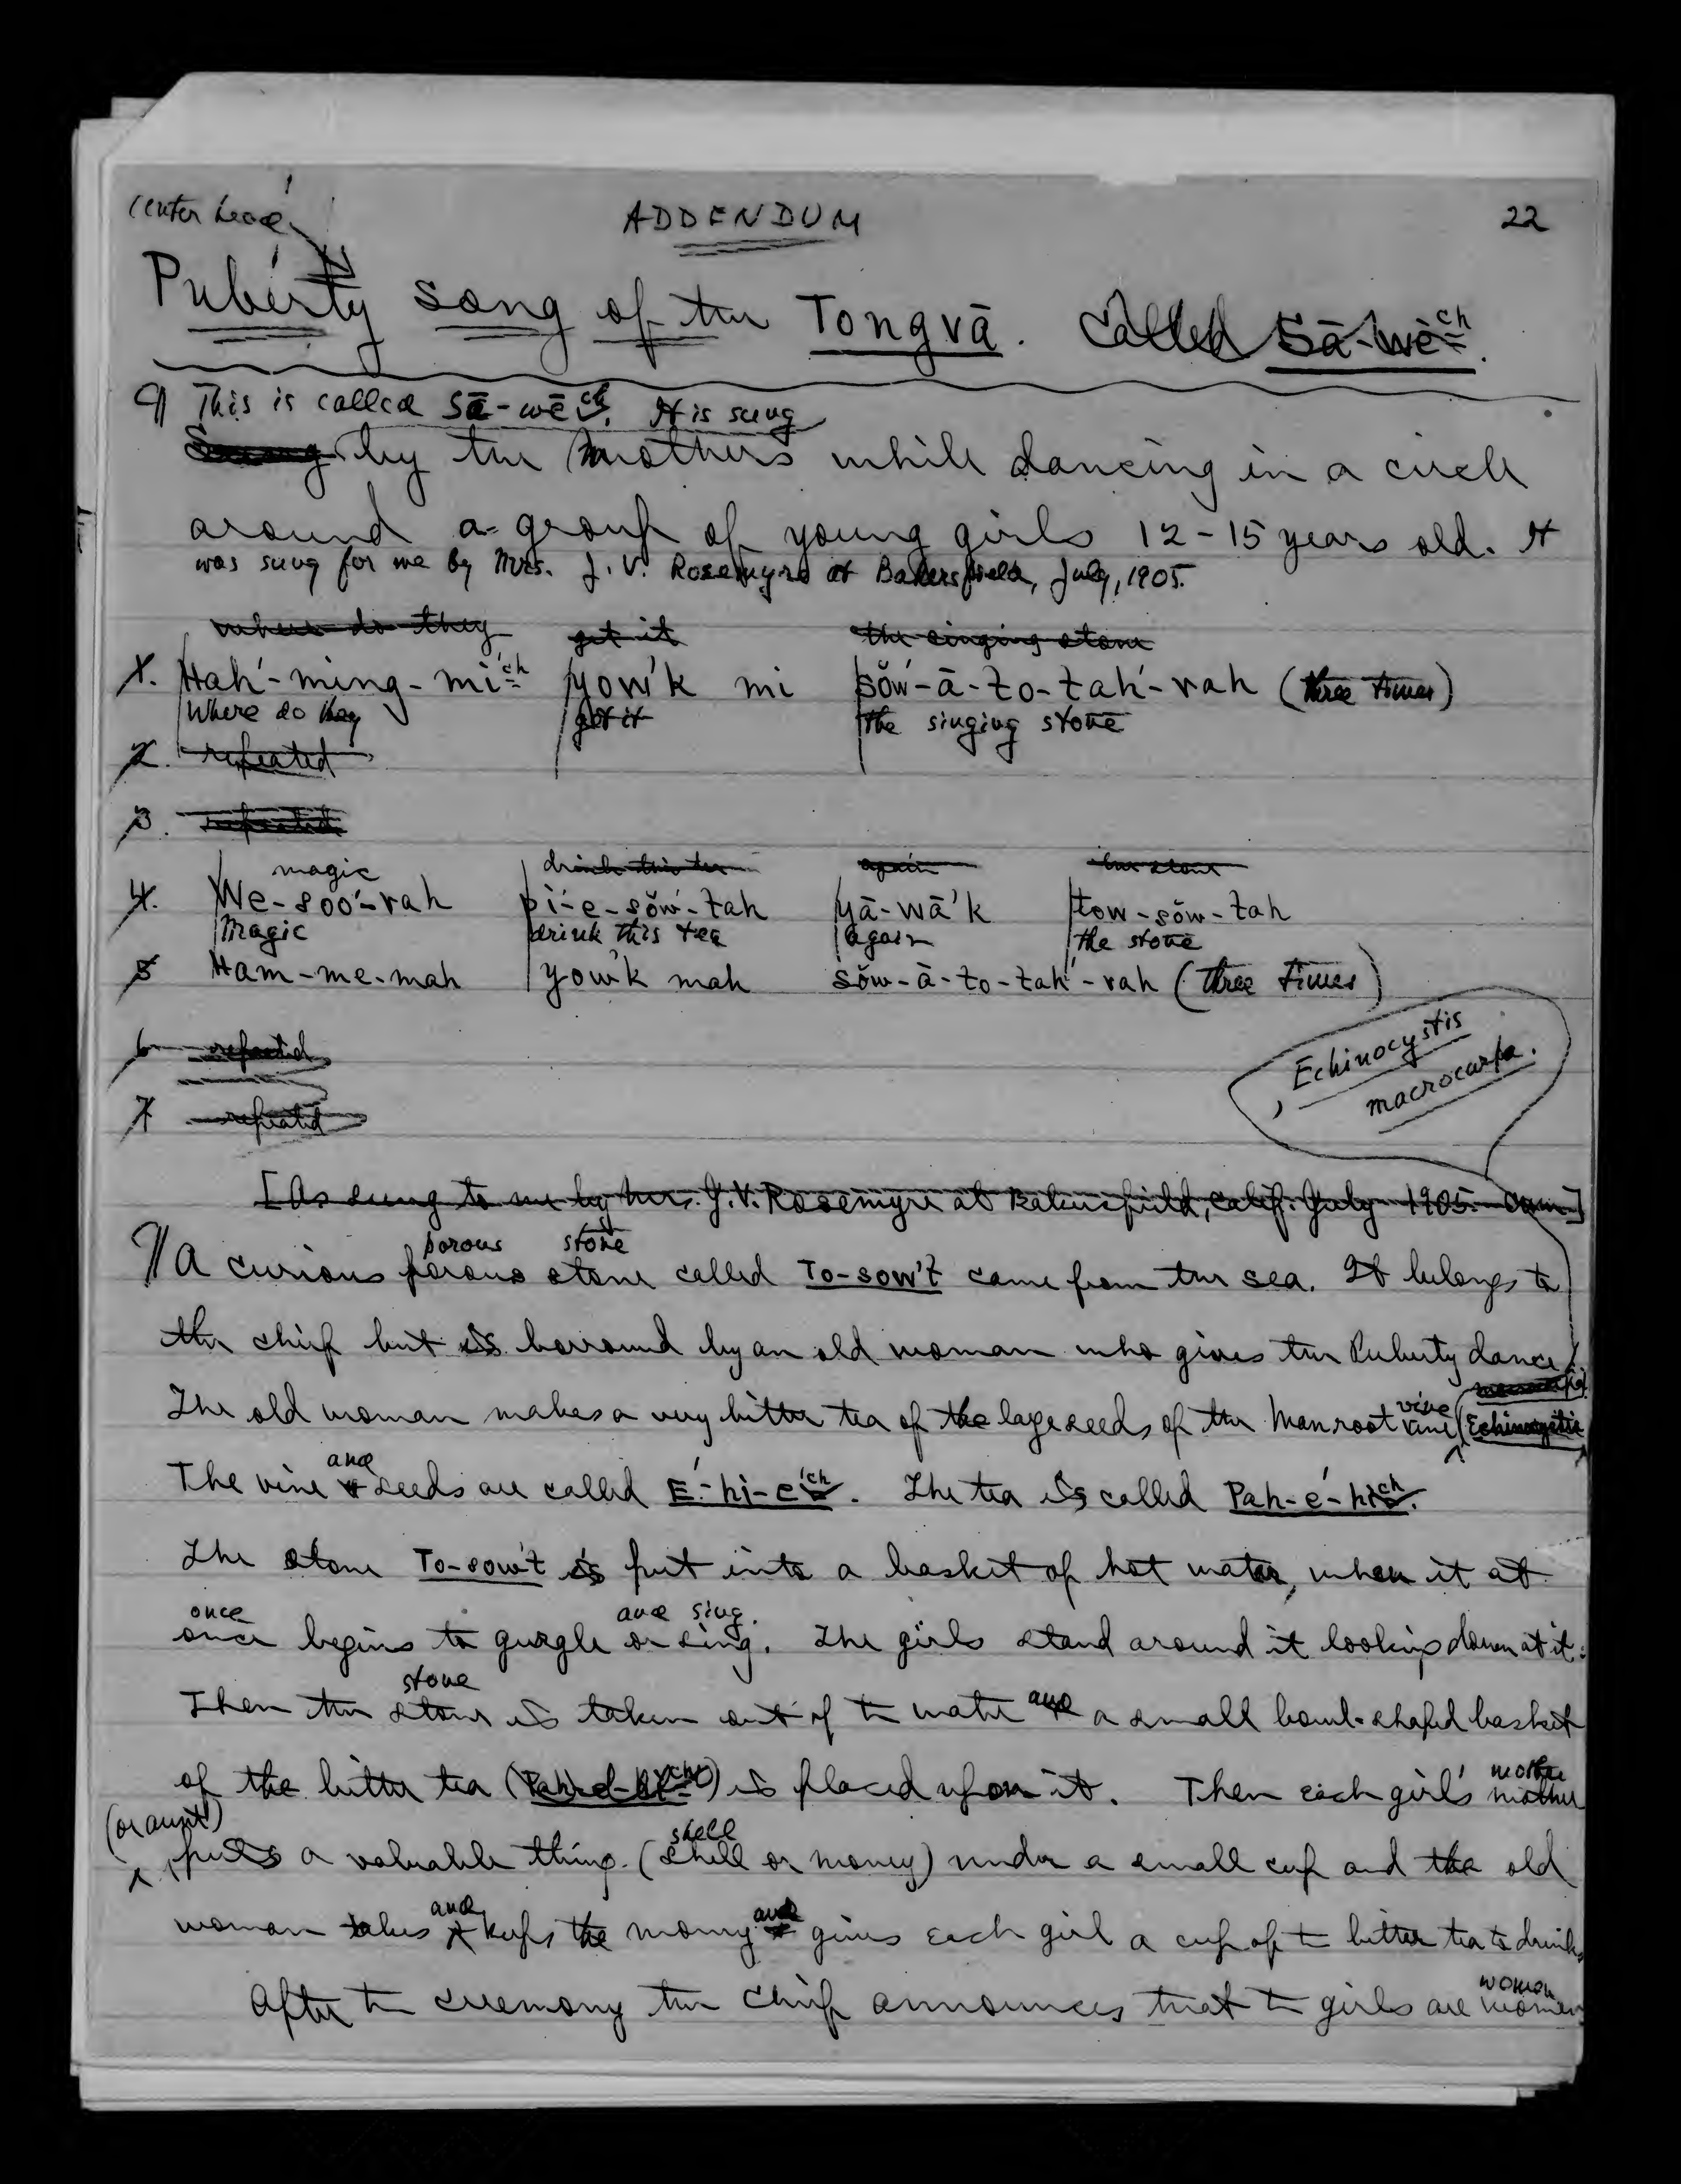 center head
ADDENDUM
22
Puberty song of the Tongvā. Called Sā-wē ch.
¶ This is called Sā-wē ch. It is sung
Sung by the mothers while dancing in a circle
around a group of young girls 12-15 years old. It
was sung for me by Mrs. J. V. Rosemyre at Bakersfield, July, 1905.
where do they get it the singing stone
1. Hah´-ming-mi´ch yow´k mi sŏw´-ā-to-tah´-rah (three times)
Where do they get it the singing stone
2. repeated
3. repeated
magic drink this tea again the stone
4. We-soo´-rah pi´-e-sŏw´-tah yā-wā´k tow-sŏw-tah
Magic drink this tea again the stone
5 Ham-me-mah yow´k mah sŏw-ā-to-tah´-rah (three times)
6 repeated
7 repeated
, Echinocystis
macrocarpa.
[As sung to me by Mrs. J. V. Rosemyre at Bakersfield, Calif. July 1905. CHM]
porous stone
¶ A curious porous stone called To-sow´t came from the sea. It belongs to
the chief but is borrowed by an old woman who gives the Puberty dance.
macrocarpa
vine
The old woman makes a very bitter tea of the large seeds of the Manroot vine (Echinocystis
and
The vine & seeds are called E´-hi-e´ch. The tea is called Pah-e´-hich.
The stone To-sow´t is put into a basket of hot water, when it at
once and sing.
once begins to gurgle or sing. The girls stand around it looking down at it.
stone
Then the stone is taken out of the water and a small bowl-shaped basket
of the bitter tea (Pah-e-hich) is placed upon it. Then each girl's mother
mother
(or aunt)
shell
puts a valuable thing (shell or money) under a small cup and the old
and and
woman takes & keeps the money & gives each girl a cup of the bitter tea to drink.
women
After the ceremony the chief announces that the girls are women